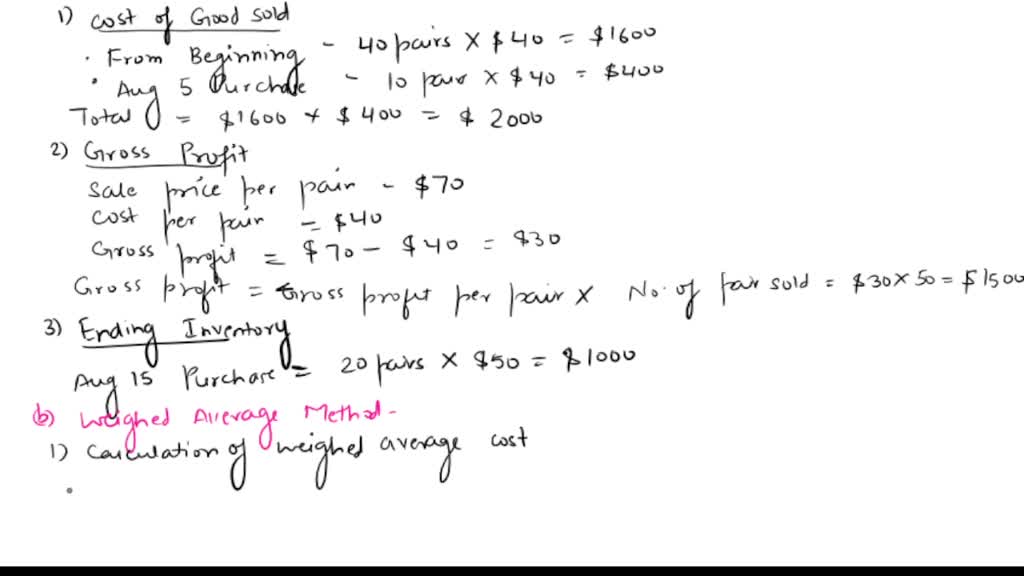 1) Cost of Good sold
· From Beginning - 40 pairs X $40 = $1600
· Aug 5 Purchase - 10 pair X $40 = $400
Total = $1600 + $400 = $2000
2) Gross Profit
Sale price per pair - $70
Cost per pair = $40
Gross profit = $70 - $40 = $30
Gross profit = Gross profit per pair X No. of pair sold = $30 X 50 = $1500
3) Ending Inventory
Aug 15 Purchase = 20 pairs X $50 = $1000
(b) Weighed Average Method-
1) Calculation of weighed average cost